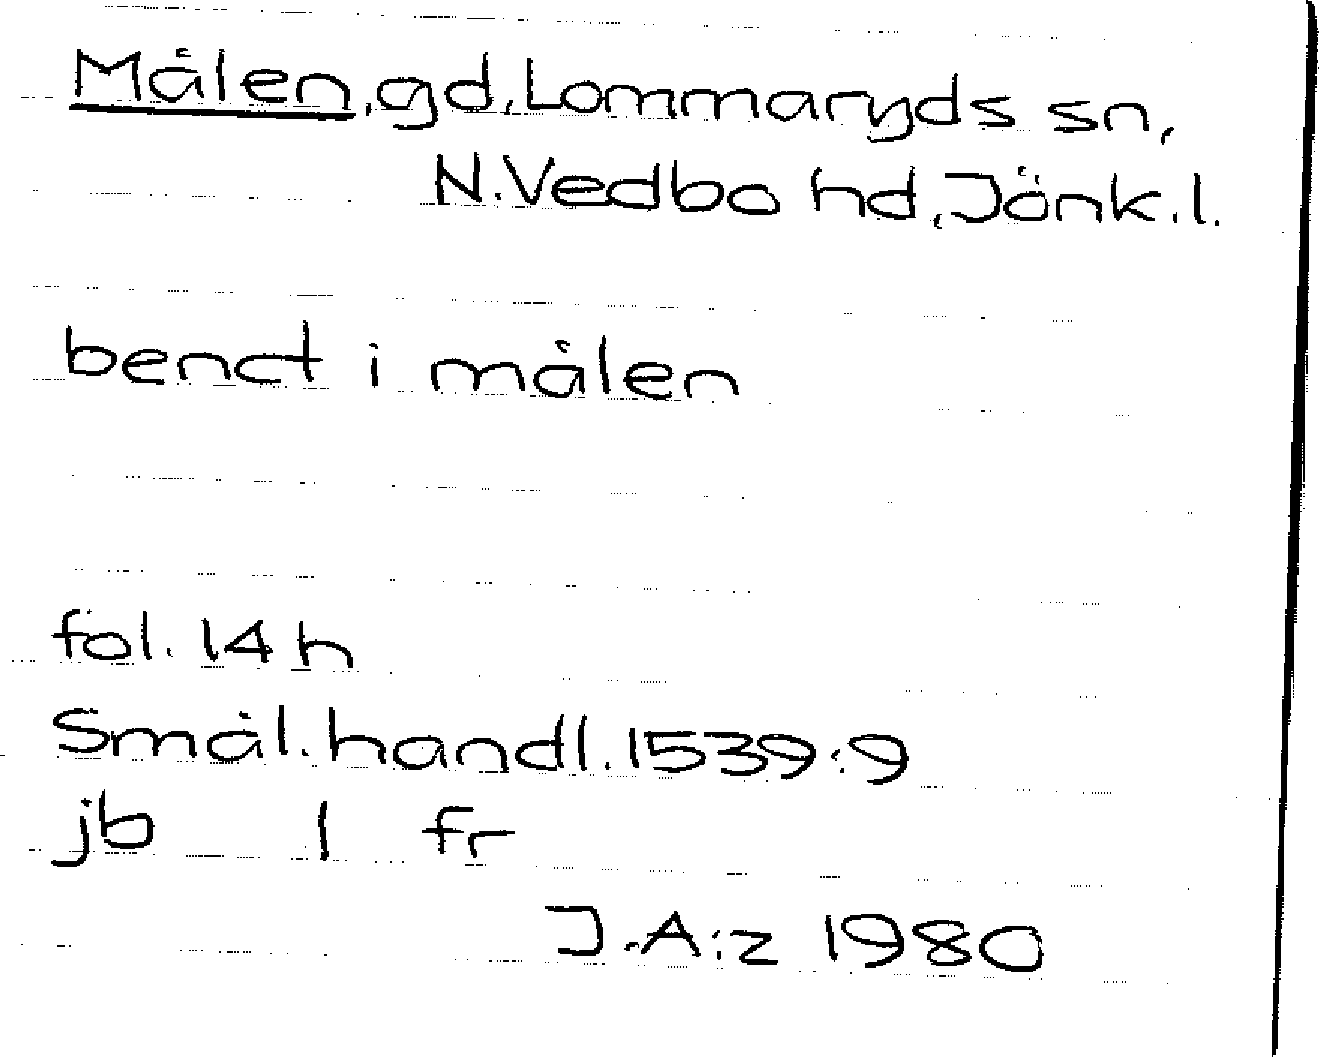 Målen, gd, Lommaryds sn,
N. Vedbo hd, Jönk. l.
benct i målen
fol. 14 h
Smål. handl. 1539:9
jb 1 fr
J.A:z 1980